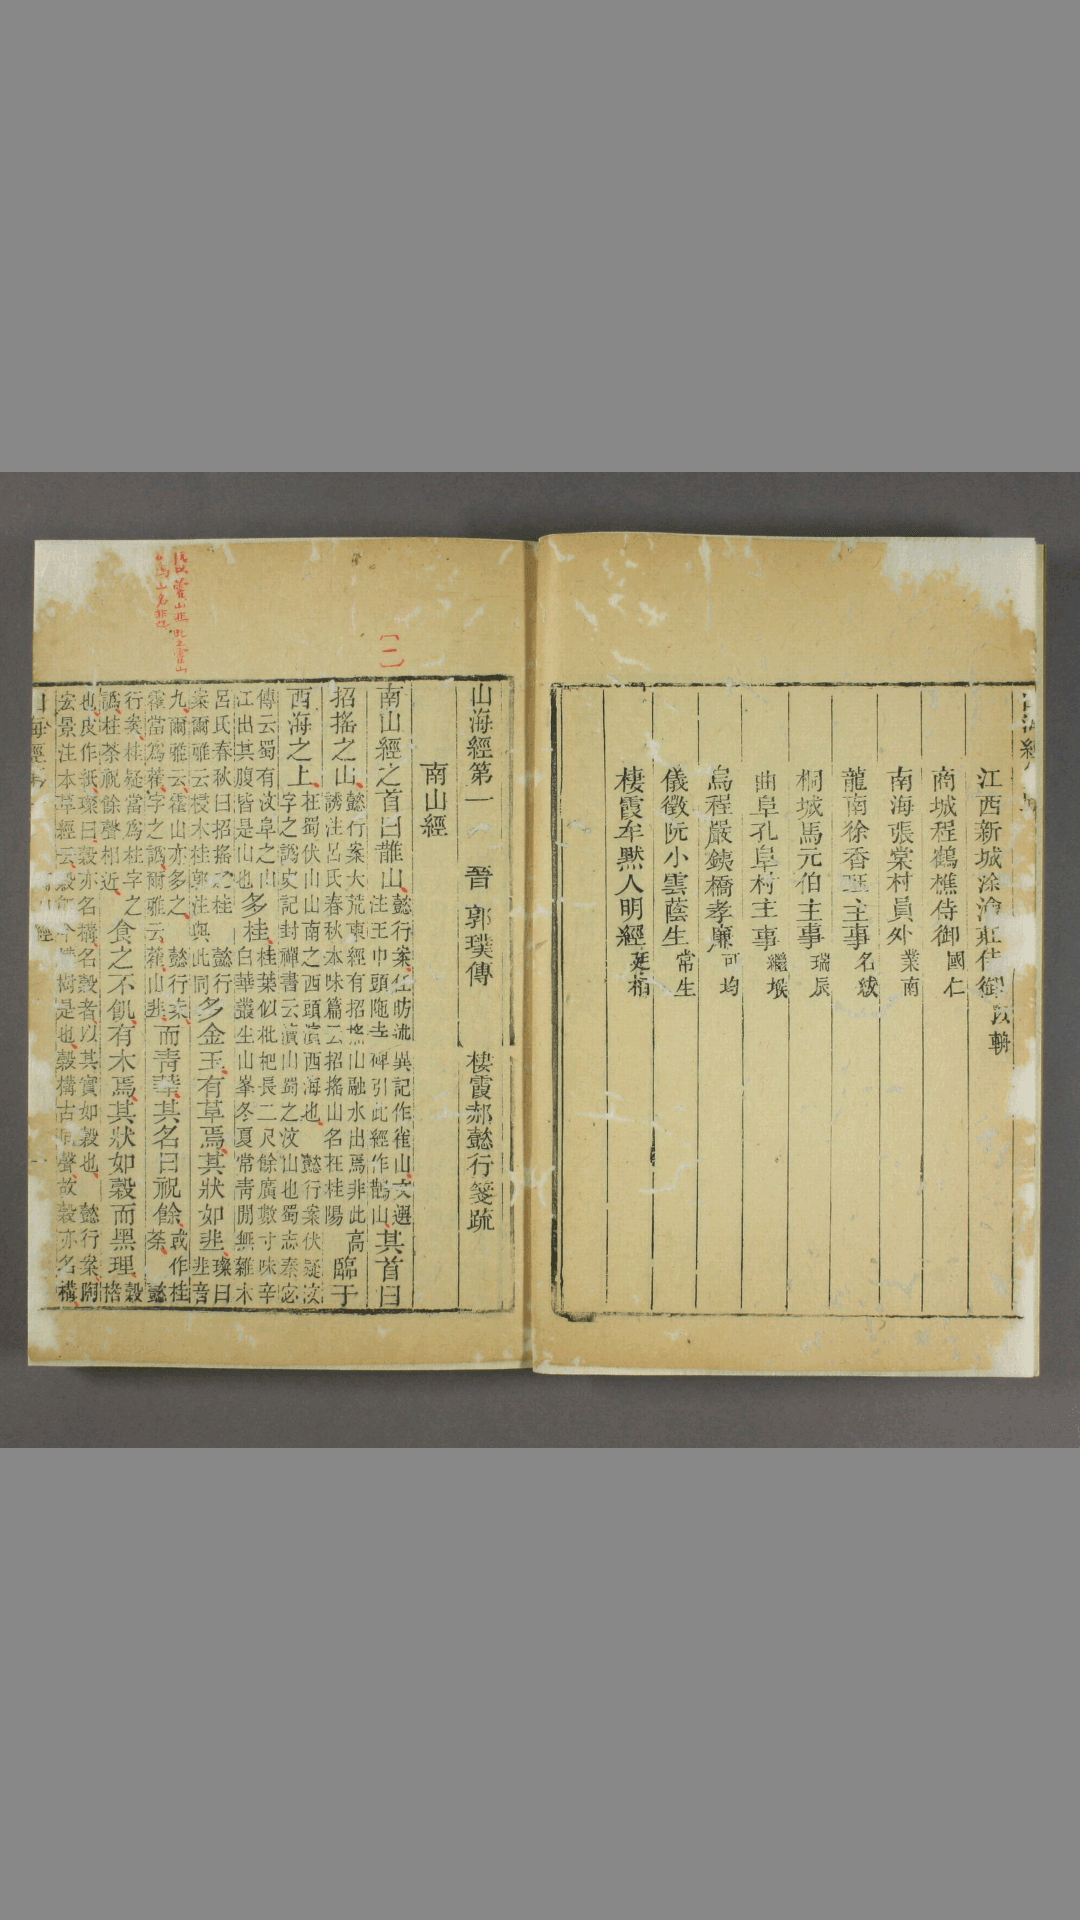 江西新城涂瀹莊侍御 以輈
商城程鶴樵侍御 國仁
南海張棠村員外 業南
龍南徐香垤主事 名紱
桐城馬元伯主事 瑞辰
曲阜孔阜村主事 繼堠
烏程嚴鐵橋孝廉 可均
儀徵阮小雲蔭生 常生
棲霞牟默人明經 廷相
山海經第一 晉 郭璞傳 棲霞郝懿行箋疏
南山經
〔一〕
南山經之首曰䧿山懿行案任昉述異記作雀山文選注王巾頭陁寺碑引此經作鵲山其首曰
招搖之山懿行案大荒東經有招搖山融水出焉非此高誘注呂氏春秋本味篇云招搖山名在桂陽臨于
西海之上在蜀伏山山南之西頭濱西海也 懿行案伏疑汶字之譌史記封禪書云瀆山蜀之汶山也蜀志秦宓
傳云蜀有汶阜之山江出其腹皆是山也多桂桂葉似枇杷長二尺餘廣數寸味辛白華叢生山峯冬夏常靑閒無雜木
呂氏春秋曰招搖之桂 懿行案爾雅云梫木桂郭注與此同多金玉有草焉其狀如韭璨曰韭音
九爾雅云霍山亦多之 懿行案霍當爲䪥字之譌爾雅云䪥山韭而靑華其名曰祝餘或作桂荼 懿
行案桂疑當爲柱字之譌柱荼祝餘聲相近食之不飢有木焉其狀如榖而黑理榖楮
也皮作紙璨曰榖亦名構名榖者以其實如榖也 懿行案陶宏景注本草經云榖即今構樹是也榖構古同聲故榖亦名構